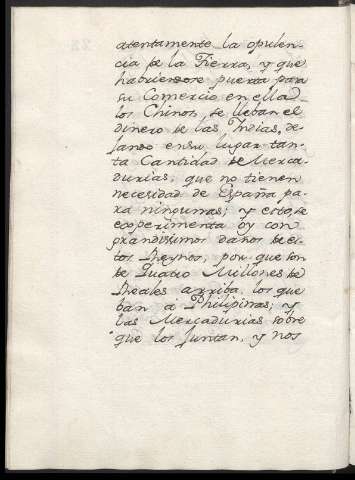 atentamente la opulen-
cia de la Tierra, y que
habriendose puerta para
su Comercio en ella
los Chinos, se lleban el
dinero de las Indias, de-
jando en su lugar tan-
ta Cantidad de Merca-
durias, que no tienen
necesidad de España pa-
ra ningunas; y esto, se
experimenta oy con
grandissimos daños de es-
tos Reynos, por que son
de Quatro Millones de
Reales arriba, los que
ban á Philipinas; y
las Mercadurias sobre
que los Juntan, y nos